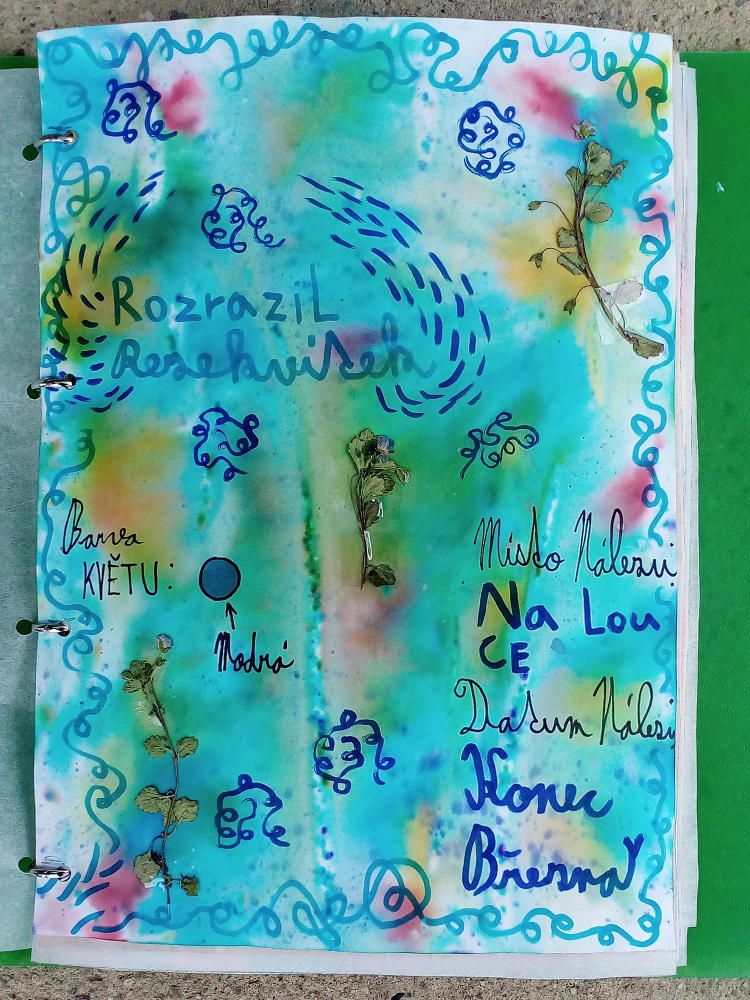 Rozrazil
Rezekvítek
Barva
KVĚTU:
Modrá
Místo Nálezu
Na Lou
CE
Datum Nálezu
Konec
Března